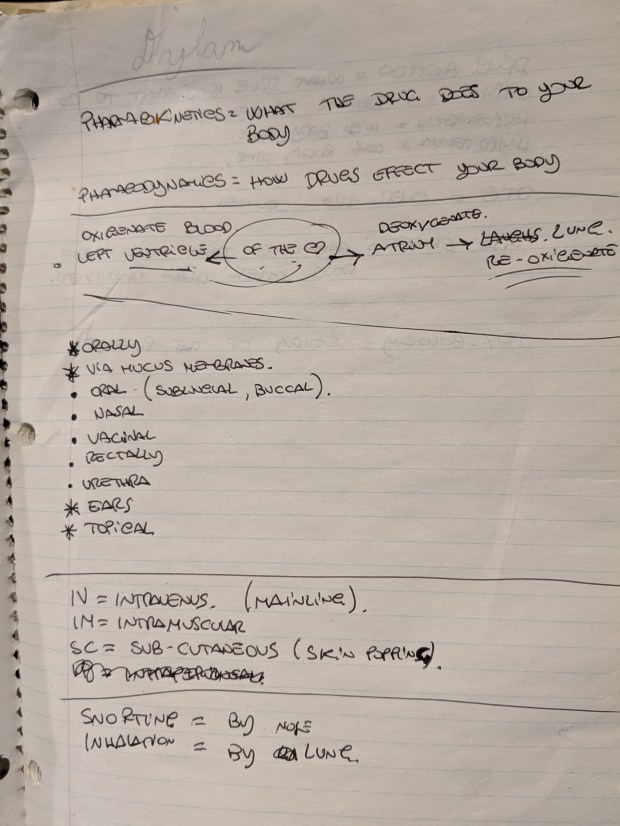 Dylan
PHARABOKINETICS = WHAT THE DRUG DOES TO YOUR
BODY
PHARABODYNAMICS = HOW DRUGS EFFECT YOUR BODY
OXIGENATE BLOOD
LEFT VENTRICLE ← OF THE ♡ → ATRIUM → LUNG.
DEOXYGENATE.
RE-OXIGENATE
* ORALLY
* VIA MUCUS MEMBRANES.
• ORAL (SUBLINGUAL, BUCCAL).
• NASAL
• VAGINAL
• RECTALLY
• URETHRA
* EARS
* TOPICAL
IV = INTRAVENUS. (MAINLINE).
IM = INTRAMUSCULAR
SC = SUB-CUTANEOUS (SKIN POPPING).
SNORTING = BY NOSE
INHALATION = BY LUNG.